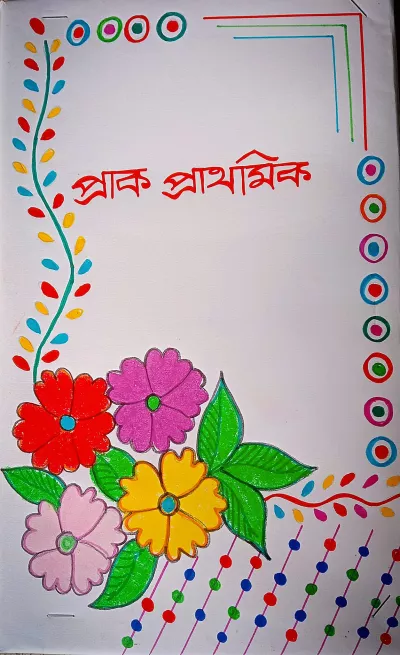 প্রাক প্রাথমিক